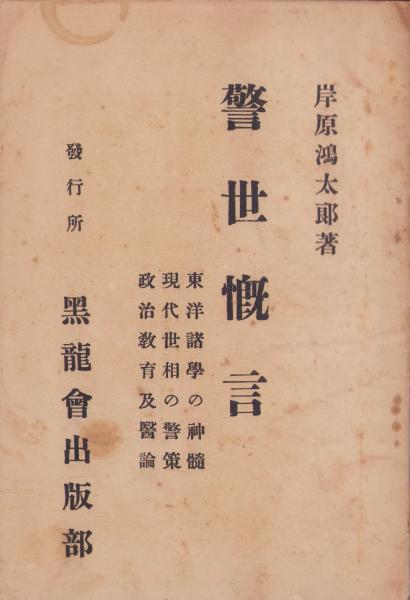 岸原鴻太郞著
警世慨言
東洋諸學の神髓
現代世相の警策
政治敎育及醫論
發行所
黑龍會出版部